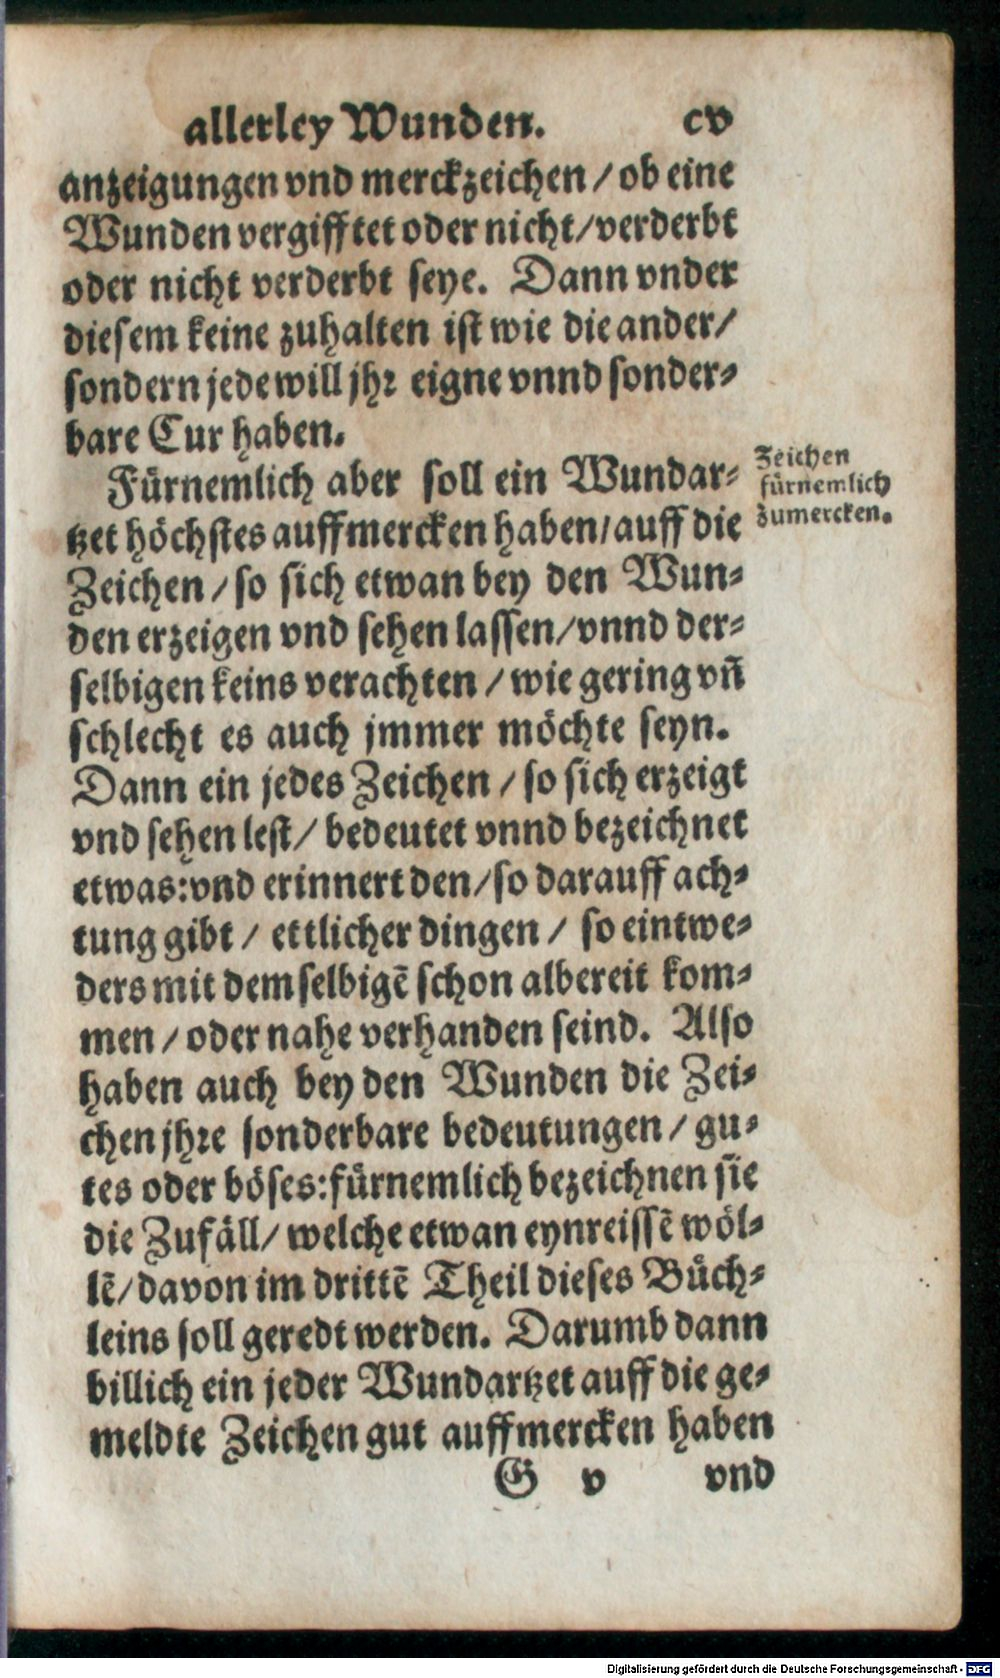 allerley Wunden. cv
anzeigungen vnd merckzeichen / ob eine
Wunden vergifftet oder nicht / verderbt
oder nicht verderbt seye. Dann vnder
diesem keine zuhalten ist wie die ander /
sondern jede will jhr eigne vnnd sonder-
bare Cur haben.
Fürnemlich aber soll ein Wundar-
tzet höchstes auffmercken haben / auff die
Zeichen / so sich etwan bey den Wun-
den erzeigen vnd sehen lassen / vnnd der-
selbigen keins verachten / wie gering vn̄
schlecht es auch jmmer möchte seyn.
Dann ein jedes Zeichen / so sich erzeigt
vnd sehen lest / bedeutet vnnd bezeichnet
etwas: vnd erinnert den / so darauff ach-
tung gibt / ettlicher dingen / so eintwe-
ders mit dem selbigē schon albereit kom-
men / oder nahe verhanden seind. Also
haben auch bey den Wunden die Zei-
chen jhre sonderbare bedeutungen / gu-
tes oder böses: fürnemlich bezeichnen sie
die Zufäll / welche etwan eynreissē wöl-
lē / davon im drittē Theil dieses Büch-
leins soll geredt werden. Darumb dann
billich ein jeder Wundartzet auff die ge-
meldte Zeichen gut auffmercken haben
G v vnd
Zeichen
fürnemlich
zumercken.
Digitalisierung gefördert durch die Deutsche Forschungsgemeinschaft - DFG